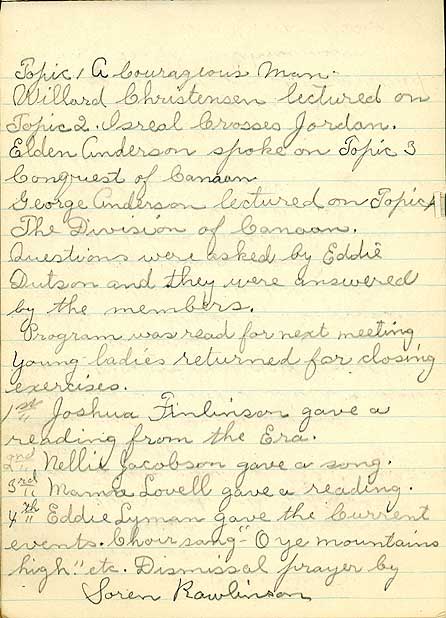 Topic 1 A Courageous Man.
Willard Christensen lectured on
Topic 2. Isreal Crosses Jordan.
Elden Anderson spoke on Topic 3
Conquest of Canaan
George Anderson lectured on Topic 4
The Division of Canaan.
Questions were asked by Eddie
Dutson and they were answered
by the members.
Program was read for next meeting
young ladies returned for closing
exercises.
1st Joshua Finlinson gave a
reading from the Era.
2nd " Nellie Jacobson gave a song.
3rd " Mamra Lovell gave a reading.
4th " Eddie Lyman gave the Current
events. Choir sang "O ye mountains
high" etc. Dismissal prayer by
Soren Rawlinson